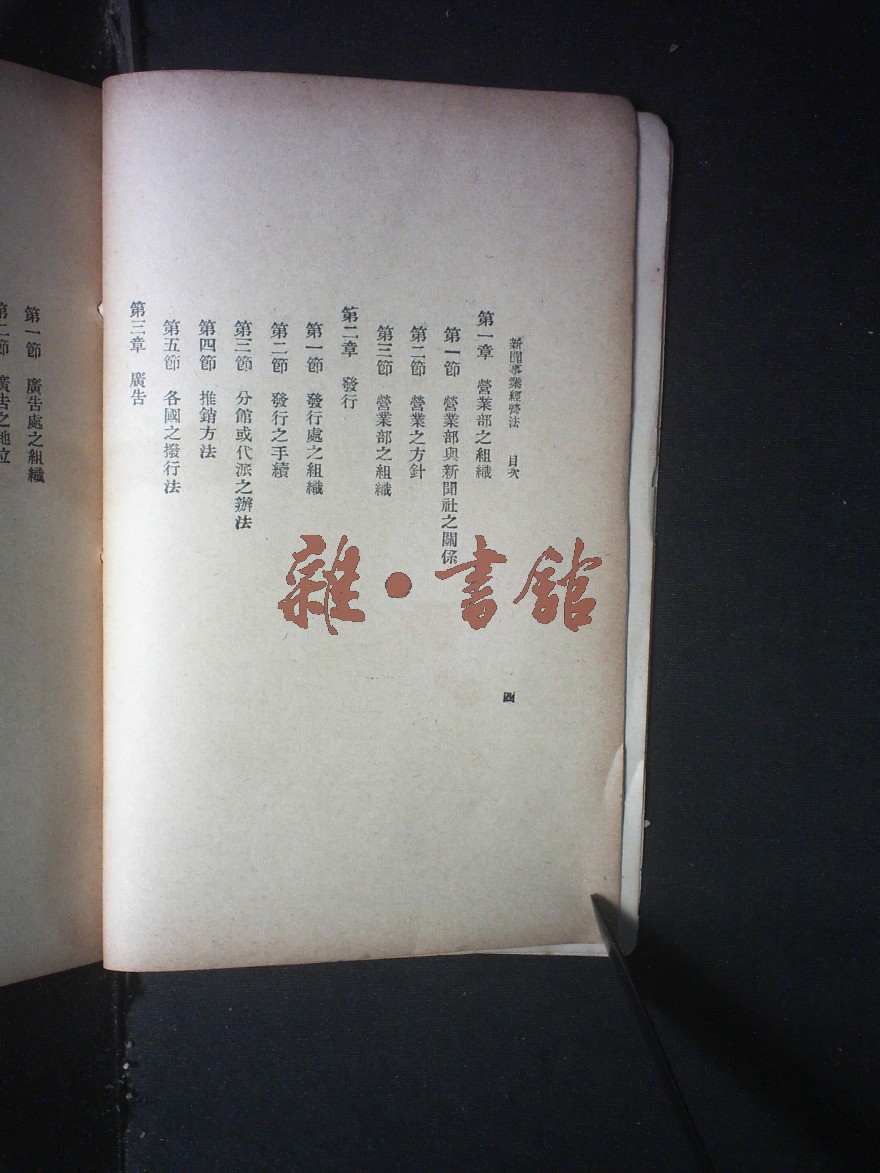 新聞事業經營法 目次
四
第一章 營業部之組織
第一節 營業部與新聞社之關係
第二節 營業之方針
第三節 營業部之組織
第二章 發行
第一節 發行處之組織
第二節 發行之手續
第三節 分館或代派之辦法
第四節 推銷方法
第五節 各國之發行法
第三章 廣告
第一節 廣告處之組織
第二節 廣告之地位
雜·書館